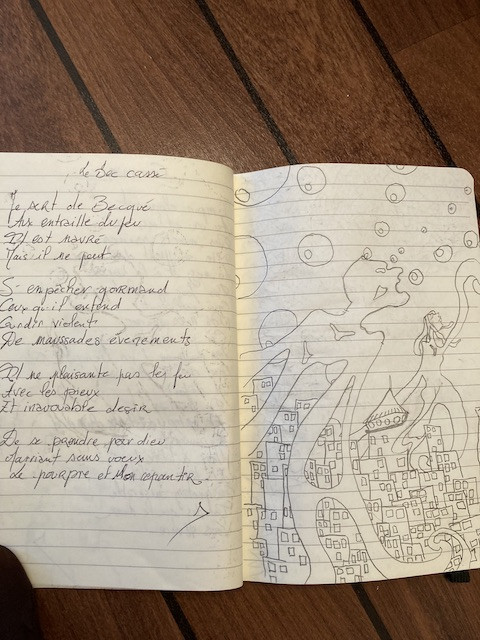 Le Bec cassé
Le sert de Becqué
Aux entraille du feu
Il est navré
Mais il ne peut
S'empêcher gormand
Ceux qu'il entend
violent
De maussades evenements
Il ne plaisante pas les feu
Avec les pieux
Et inavouable desir
De se prendre pour dieu
sans voeux
de pourpre et Mon repentir